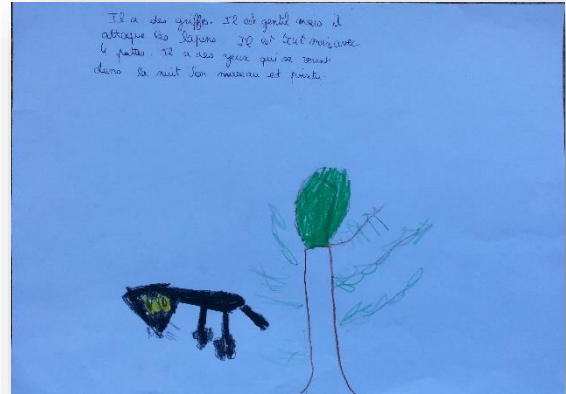 Il a des griffes. Il est gentil mais il
attaque les lapins. Il est tout noir avec
4 pattes. Il a des yeux qui se voient
dans la nuit Son museau et pointu.